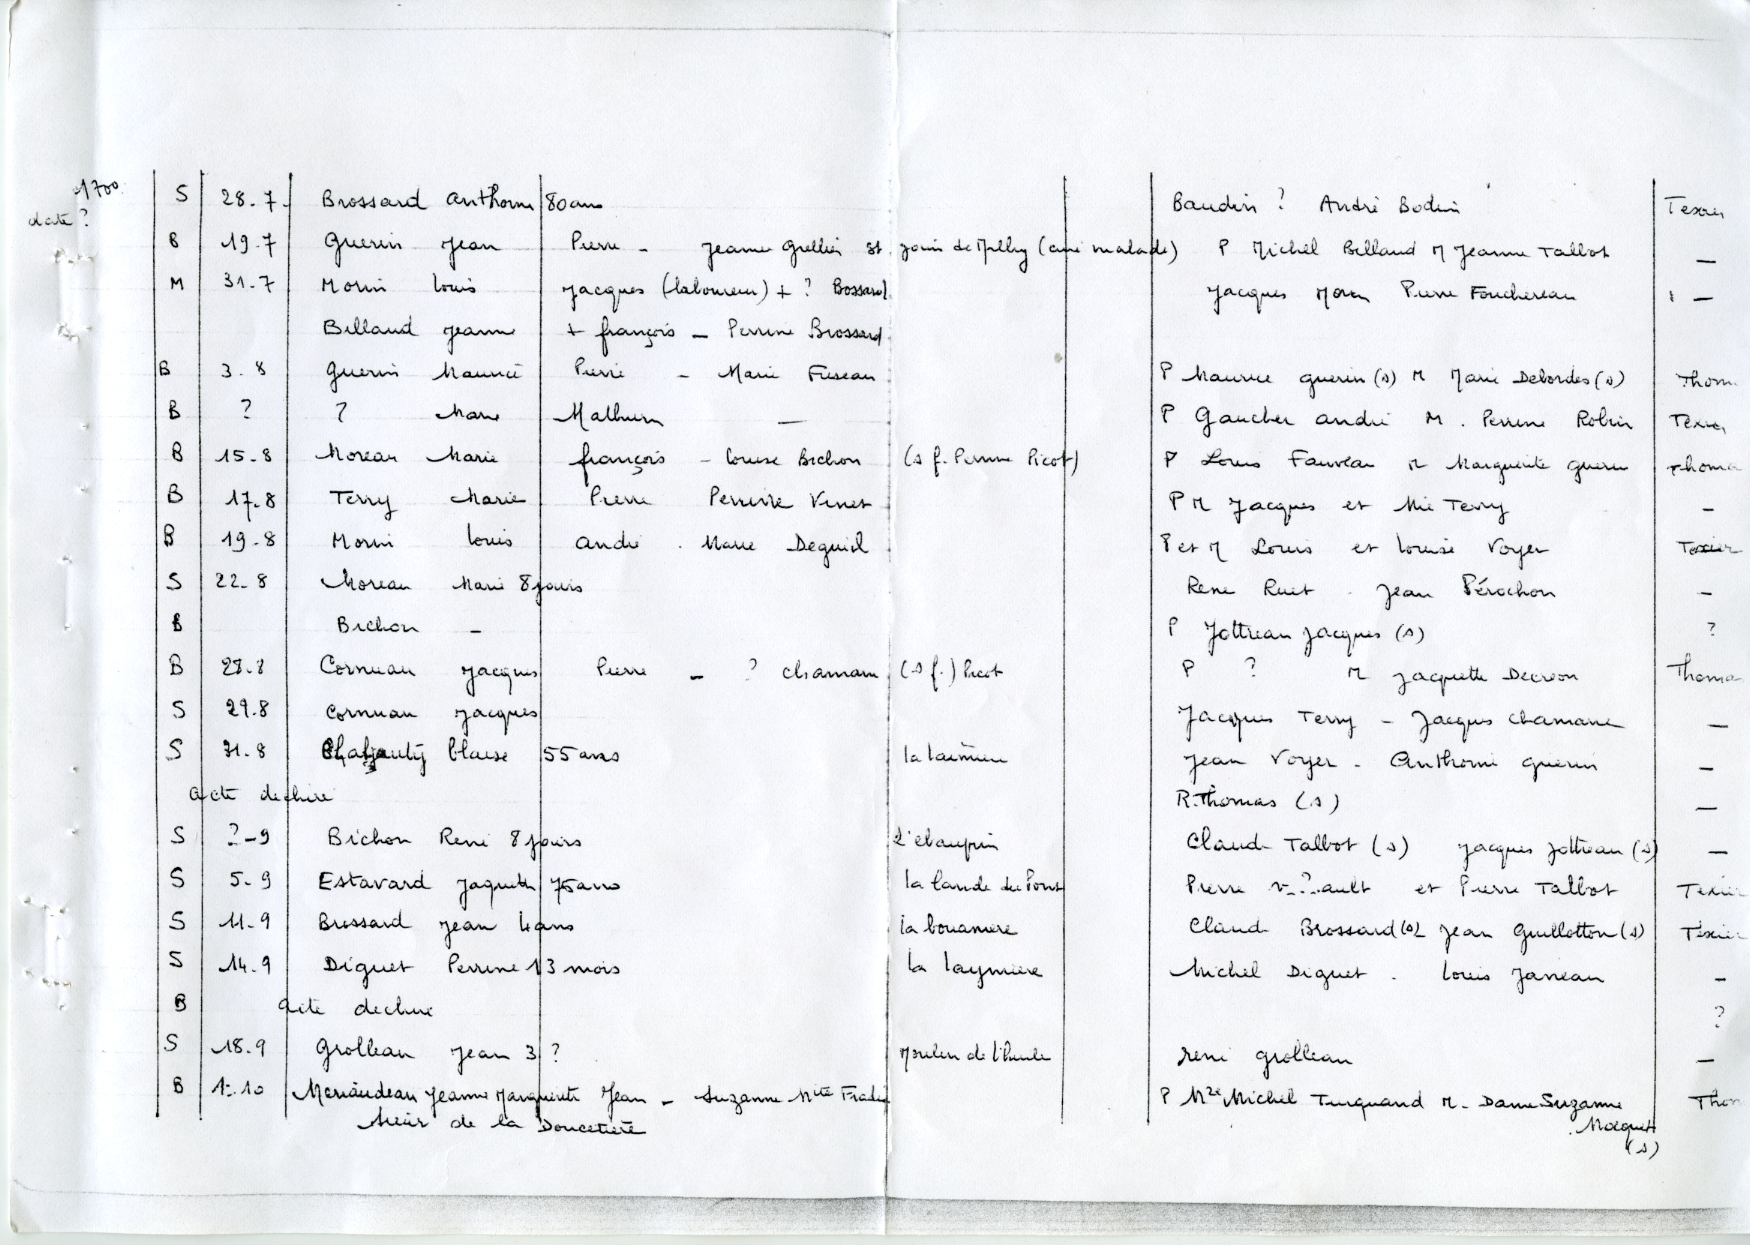 1700
date ?
S 28.7 Brossard Anthoine 80 ans Baudin ? André Bodin Texier
B 19.7 Guerin Jean Pierre - Jeanne Grellier St Jouin de Milly (curé malade) P Michel Billaud M Jeanne Talbot —
M 31-7 Morin Louis Jacques (laboureur) + ? Bossard Jacques Morin Pierre Fouchereau —
Billaud Jeanne + françois — Perrine Brossard
B 3.8 Guerin Maurice Pierre - Marie Fuseau P Maurice Guerin (s) M Marie Debordes (s) Thom
B ? ? Marie Mathurin — P Gaucher andré M. Perrine Robin Texier
B 15.8 Moreau Marie françois - Louise Bichon (s f. Perrine Picot) P Louis Fauveau M Marguerite guerin Thoma
B 17.8 Terry Marie Pierre Perrine Vinet P M Jacques et Mie Terry —
B 19.8 Morin Louis André . Marie Deguil P et M Louis et Louise Voyer Texier
S 22.8 Moreau Marie 8 jours René Ruet . Jean Pérochon —
B Bichon — P Jottreau Jacques (s) ?
B 28.8 Cornuau Jacques Pierre — ? Chamane (s f.) Picot P ? M Jaquette Decron Thoma
S 29.8 Cornuau Jacques Jacques Terry - Jacques Chamane —
S 31.8 Blaise 55 ans Jean Voyer . Anthoine Guerin —
acte dechiré R. Thomas (s) —
S ?-9 Bichon René 8 jours L'ebaupin Claude Talbot (s) Jacques Jottreau (s) —
S 5.9 Estavard Jaquette 75 ans la lande du Pont Pierre v-?-ault et Pierre Talbot Texier
S 11.9 Brossard Jean 4 ans la bouaniere Claude Brossard (s) Jean Guillotton (s) Texier
S 14.9 Diguet Perrine 13 mois la laymiere Michel Diguet . Louis Janeau —
B acte dechiré ?
S 18.9 Grolleau Jean 3 ? Moulin de l'hunle René Grolleau —
B 1.10 Meriaudeau Jeanne Marguerite Jean — Suzanne Mite Fradin P Mre Michel Turquand M. Dame Suzanne Thom
Sieur de la Doucetiere Moquet
(s)